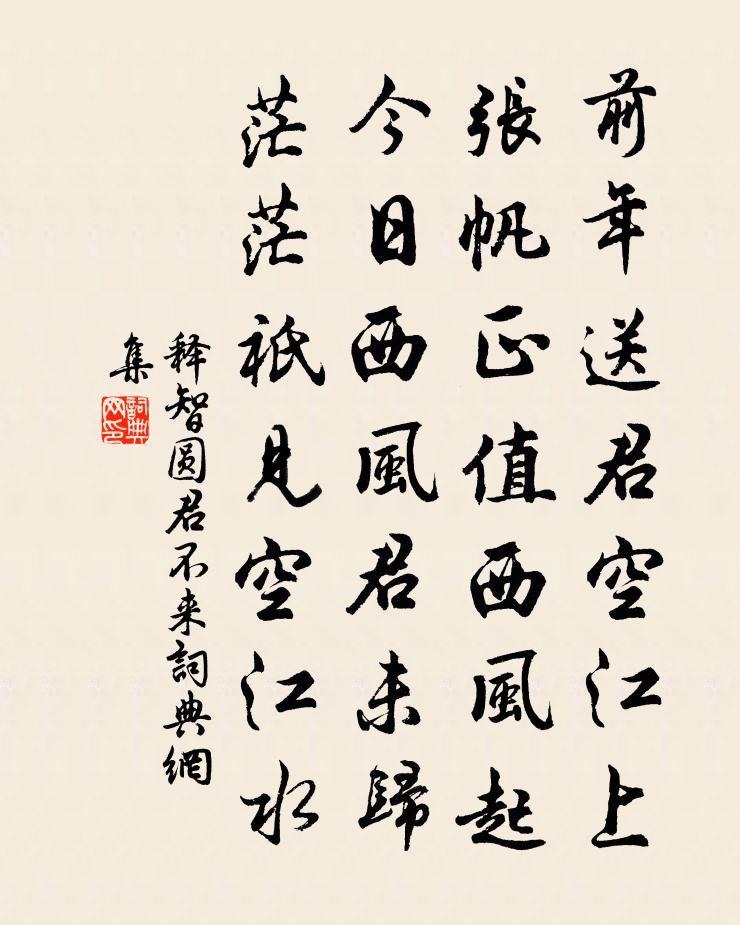 前年送君空江上
張帆正值西風起
今日西風君未歸
茫茫祇見空江水
释智圆君不来詞典網
集
詞典
网印